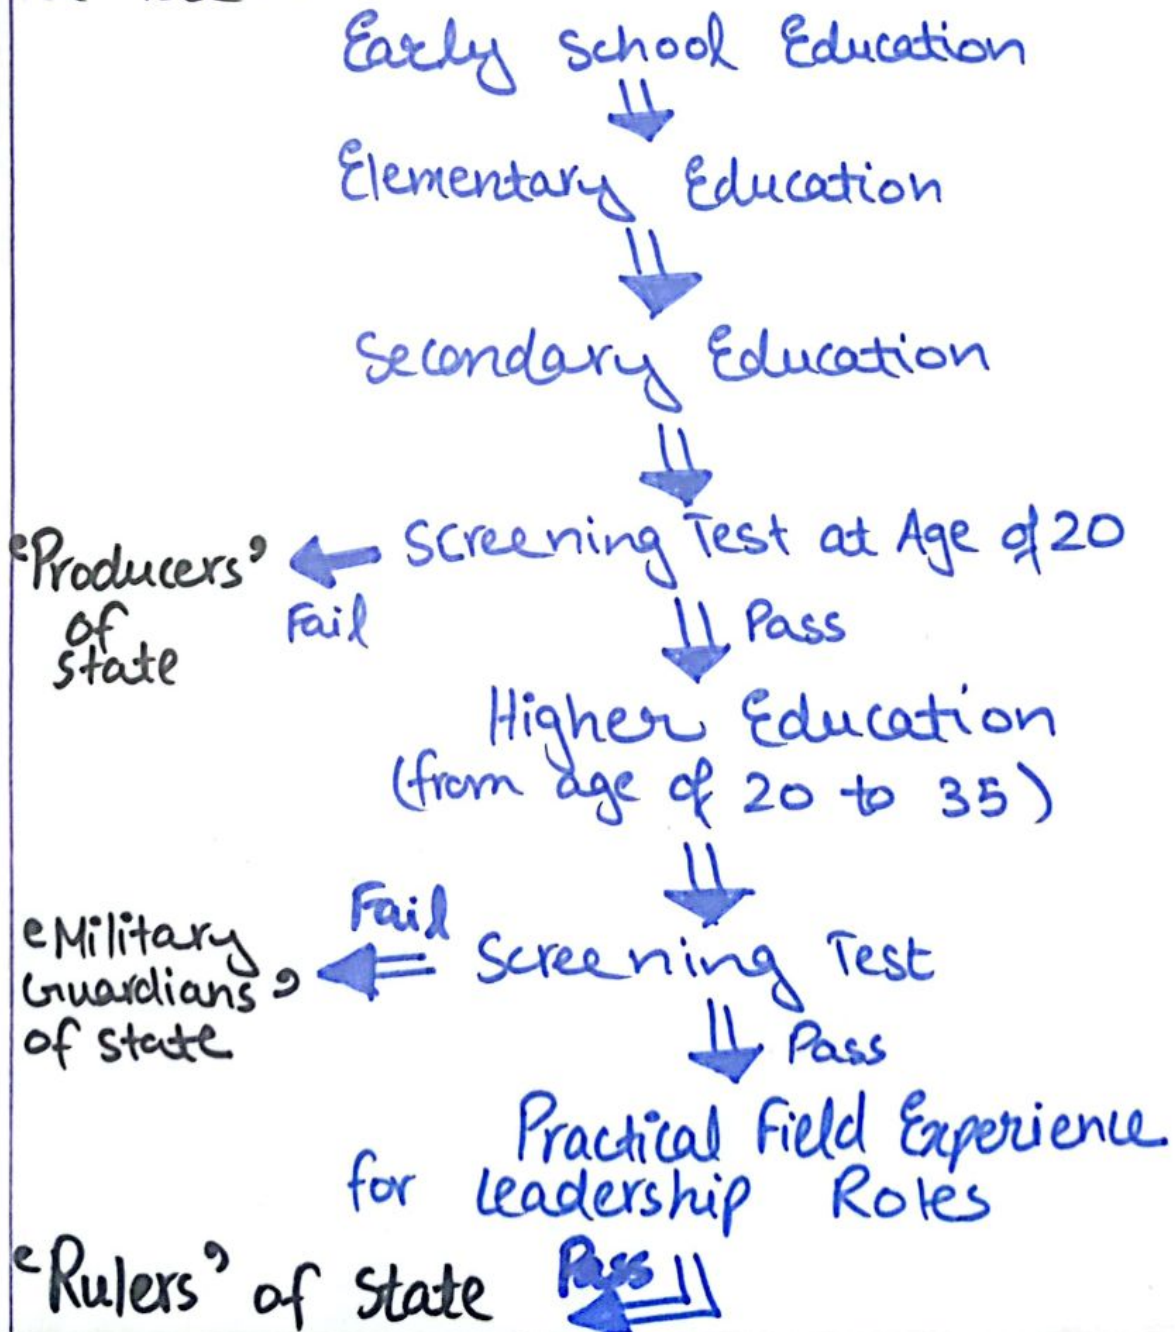 Early School Education
Elementary Education
Secondary Education
Screening Test at Age of 20
"Producers"
of
state
Fail
Pass
Higher Education
(from age of 20 to 35)
Fail
"Military
Guardians"
of state
Screening Test
Pass
Practical Field Experience
for leadership Roles
"Rulers" of state
Pass